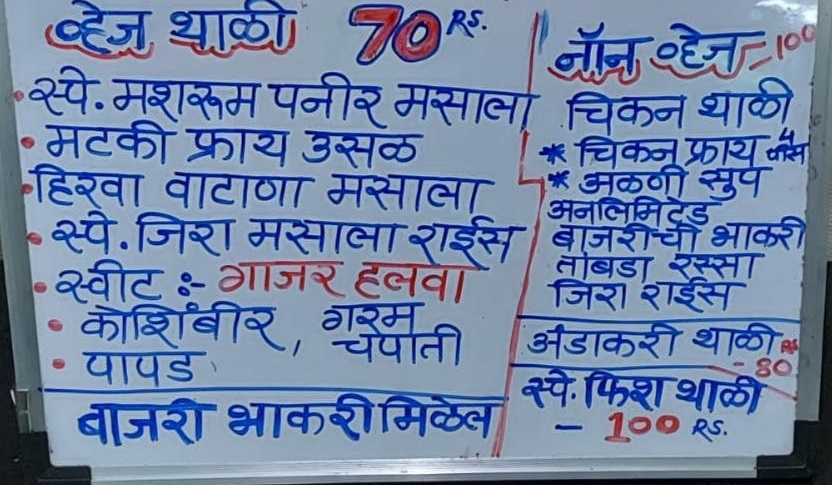 व्हेज थाळी 70 RS.
• स्पे. मशरूम पनीर मसाला
• मटकी फ्राय उसळ
• हिरवा वाटाणा मसाला
• स्पे. जिरा मसाला राईस
• स्वीट :- गाजर हलवा
• कोशिंबीर, गरम चपाती
• पापड
बाजरी भाकरी मिळेल
नॉन व्हेज - 100
चिकन थाळी
* चिकन फ्राय 4 पीस
* अळणी सुप
अनलिमिटेड
बाजरीची भाकरी
तांबडा रस्सा
जिरा राईस
अंडाकरी थाळी RS
- 80
स्पे. फिश थाळी
- 100 RS.